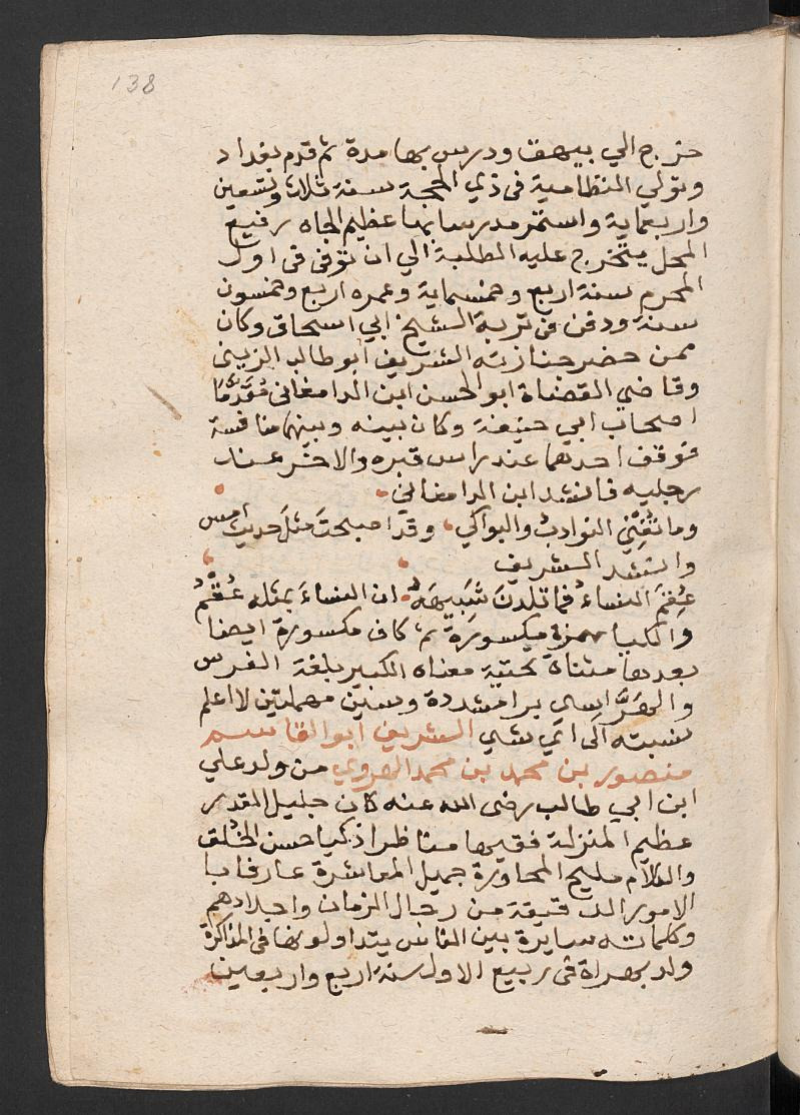 138
خرج الي بيهق ودرس بها مدة ثم قدم بغداد
وتولي النظامية في ذي الحجة سنة ثلاث وتسعين
واربعماية واستمر مدرسا بها عظيم الجاه رفيع
المحل يتخرج عليه الطلبة الي ان توفي في اول
المحرم سنة اربع وخمسماية وعمره اربع وخمسون
سنة ودفن في تربة الشيخ ابي اسحاق وكان
ممن حضر جنازته الشريف ابو طالب الزينبي
وقاضي القضاة ابو الحسن ابن الدامغاني مُقَدَّمَا
اصحاب ابي حنيفة وكان بينه وبينهما منافسة
فوقف احدهما عند راس قبره والاخر عند
رجليه فانشد ابن الدامغاني
وما تُغْنِي النوادبُ والبواكي وقد اصبحتَ مثلَ حديث امس
وانشد الشريف
عُقِمَ النساءُ فما تلدنَ شَبِيهَهُ ان النساءَ بمثله عُقْمُ
والكيا بهمزة مكسورة ثم كاف مكسورة ايضا
بعدها مثناة تحتية معناه الكبير بلغة الفرس
والهَرَّاسِي برا مشددة وسين مهملتين لا اعلم
نسبته الى اي شي الشريف ابو القاسم
منصور بن محمد بن محمد الهروي من ولد علي
ابن ابي طالب رضى الله عنه كان جليل القدر
عظيم المنزلة فقيها مناظرا ذكيا حسن الخُلق
والكلام مليح المحاورة جميل المعاشرة عارفا با
الامور الدقيقة من رجال الزمان واجلادهم
وكلماته سايرة بين الناس يتداولونها في المذاكرة
ولد بهراة في ربيع الاول سنة اربع واربعين